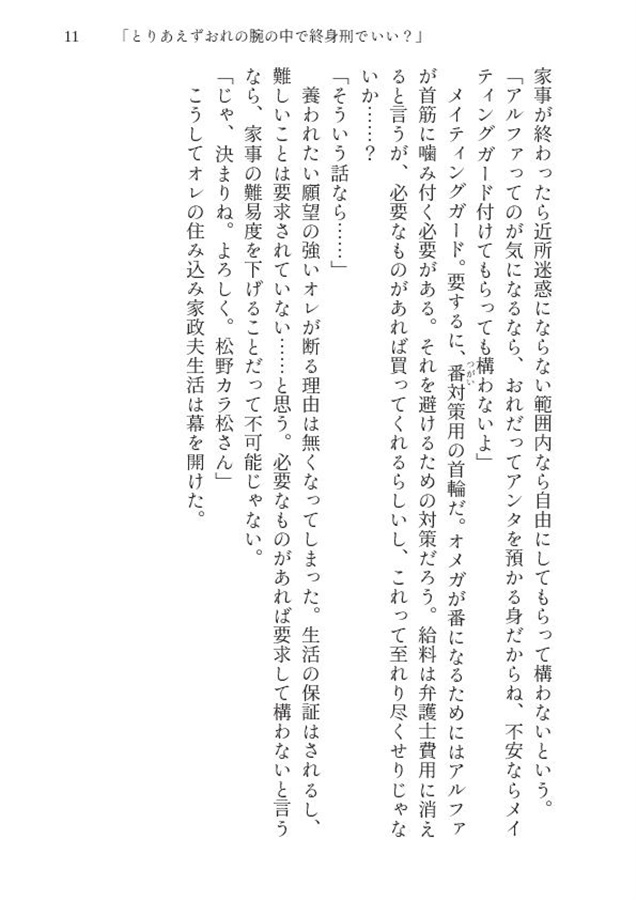 11
「とりあえずおれの腕の中で終身刑でいい？」
家事が終わったら近所迷惑にならない範囲内なら自由にしてもらって構わないという。
「アルファってのが気になるなら、おれだってアンタを預かる身だからね、不安ならメイ
ティングガード付けてもらっても構わないよ」
　メイティングガード。要するに、番対策用の首輪だ。オメガが番になるためにはアルファ
つがい
が首筋に噛み付く必要がある。それを避けるための対策だろう。給料は弁護士費用に消え
ると言うが、必要なものがあれば買ってくれるらしいし、これって至れり尽くせりじゃな
いか……？
「そういう話なら……」
　養われたい願望の強いオレが断る理由は無くなってしまった。生活の保証はされるし、
難しいことは要求されていない……と思う。必要なものがあれば要求して構わないと言う
なら、家事の難易度を下げることだって不可能じゃない。
「じゃ、決まりね。よろしく。松野カラ松さん」
　こうしてオレの住み込み家政夫生活は幕を開けた。